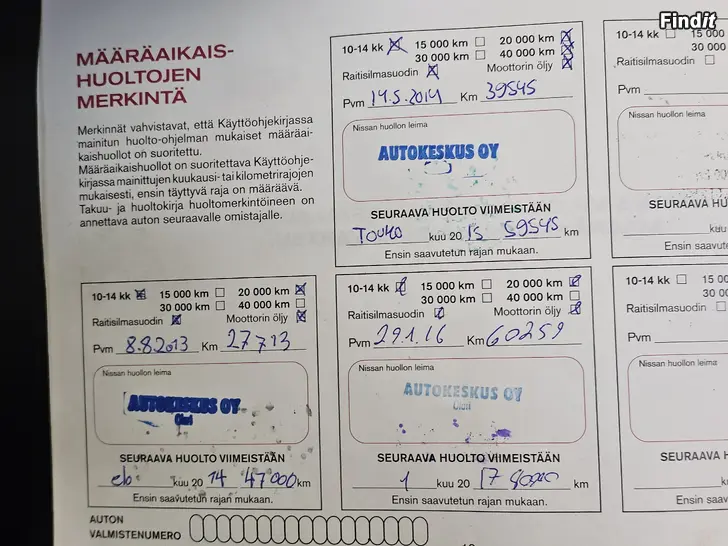 Findit
MÄÄRÄAIKAIS-
HUOLTOJEN
MERKINTÄ
Merkinnät vahvistavat, että Käyttöohjekirjassa
mainitun huolto-ohjelman mukaiset määräai-
kaishuollot on suoritettu.
Määräaikaishuollot on suoritettava Käyttöohje-
kirjassa mainittujen kuukausi- tai kilometrirajojen
mukaisesti, ensin täyttyvä raja on määräävä.
Takuu- ja huoltokirja huoltomerkintöineen on
annettava auton seuraavalle omistajalle.
10-14 kk 15 000 km 20 000 km
30 000 km 40 000 km
Raitisilmasuodin Moottorin öljy
Pvm 14.5.2014 Km 39545
Nissan huollon leima
AUTOKESKUS OY
SEURAAVA HUOLTO VIIMEISTÄÄN
Touko kuu 20 15 59545 km
Ensin saavutetun rajan mukaan.
10-14 kk 15 000
30 00
Raitisilmasuodin
Pvm
Nissan huollon leima
SEURAAVA HU
kuu
Ensin saavutetu
10-14 kk 15 000 km 20 000 km
30 000 km 40 000 km
Raitisilmasuodin Moottorin öljy
Pvm 8.8.2013 Km 27713
Nissan huollon leima
AUTOKESKUS OY
Olari
SEURAAVA HUOLTO VIIMEISTÄÄN
elo kuu 20 14 47000 km
Ensin saavutetun rajan mukaan.
10-14 kk 15 000 km 20 000 km
30 000 km 40 000 km
Raitisilmasuodin Moottorin öljy
Pvm 29.1.16 Km 60259
Nissan huollon leima
AUTOKESKUS OY
Olari
SEURAAVA HUOLTO VIIMEISTÄÄN
1 kuu 20 17 km
Ensin saavutetun rajan mukaan.
10-14 kk 15 00
30 0
Raitisilmasuodin
Pvm
Nissan huollon leima
SEURAAVA H
k
Ensin saavutet
AUTON
VALMISTENUMERO